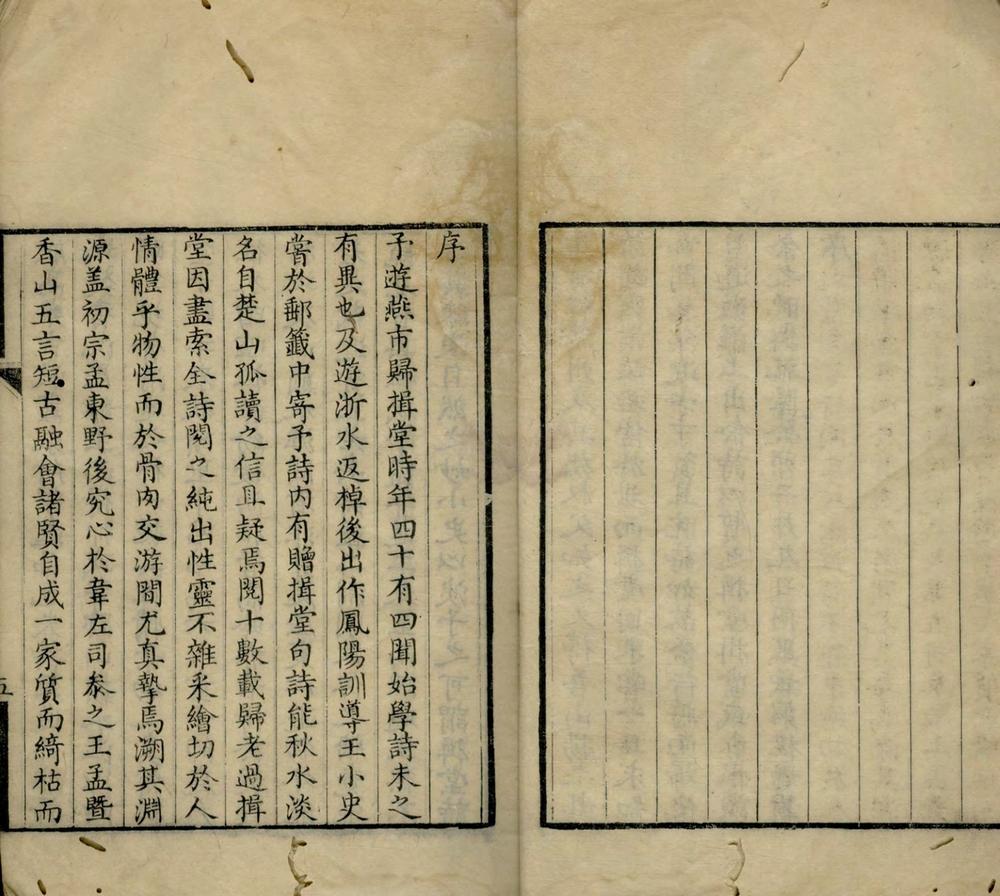 序
予遊燕市歸揖堂時年四十有四聞始學詩未之
有異也及遊浙水返棹後出作鳳陽訓導王小史
嘗於郵籤中寄予詩内有贈揖堂句詩能秋水淡
名自楚山孤讀之信且疑焉閲十數載歸老過揖
堂因盡索全詩閲之純出性靈不雜采繪切於人
情體乎物性而於骨肉交游間尤真摯焉溯其淵
源盖初宗孟東野後究心於韋左司叅之王孟暨
香山五言短古融會諸賢自成一家質而綺枯而
五